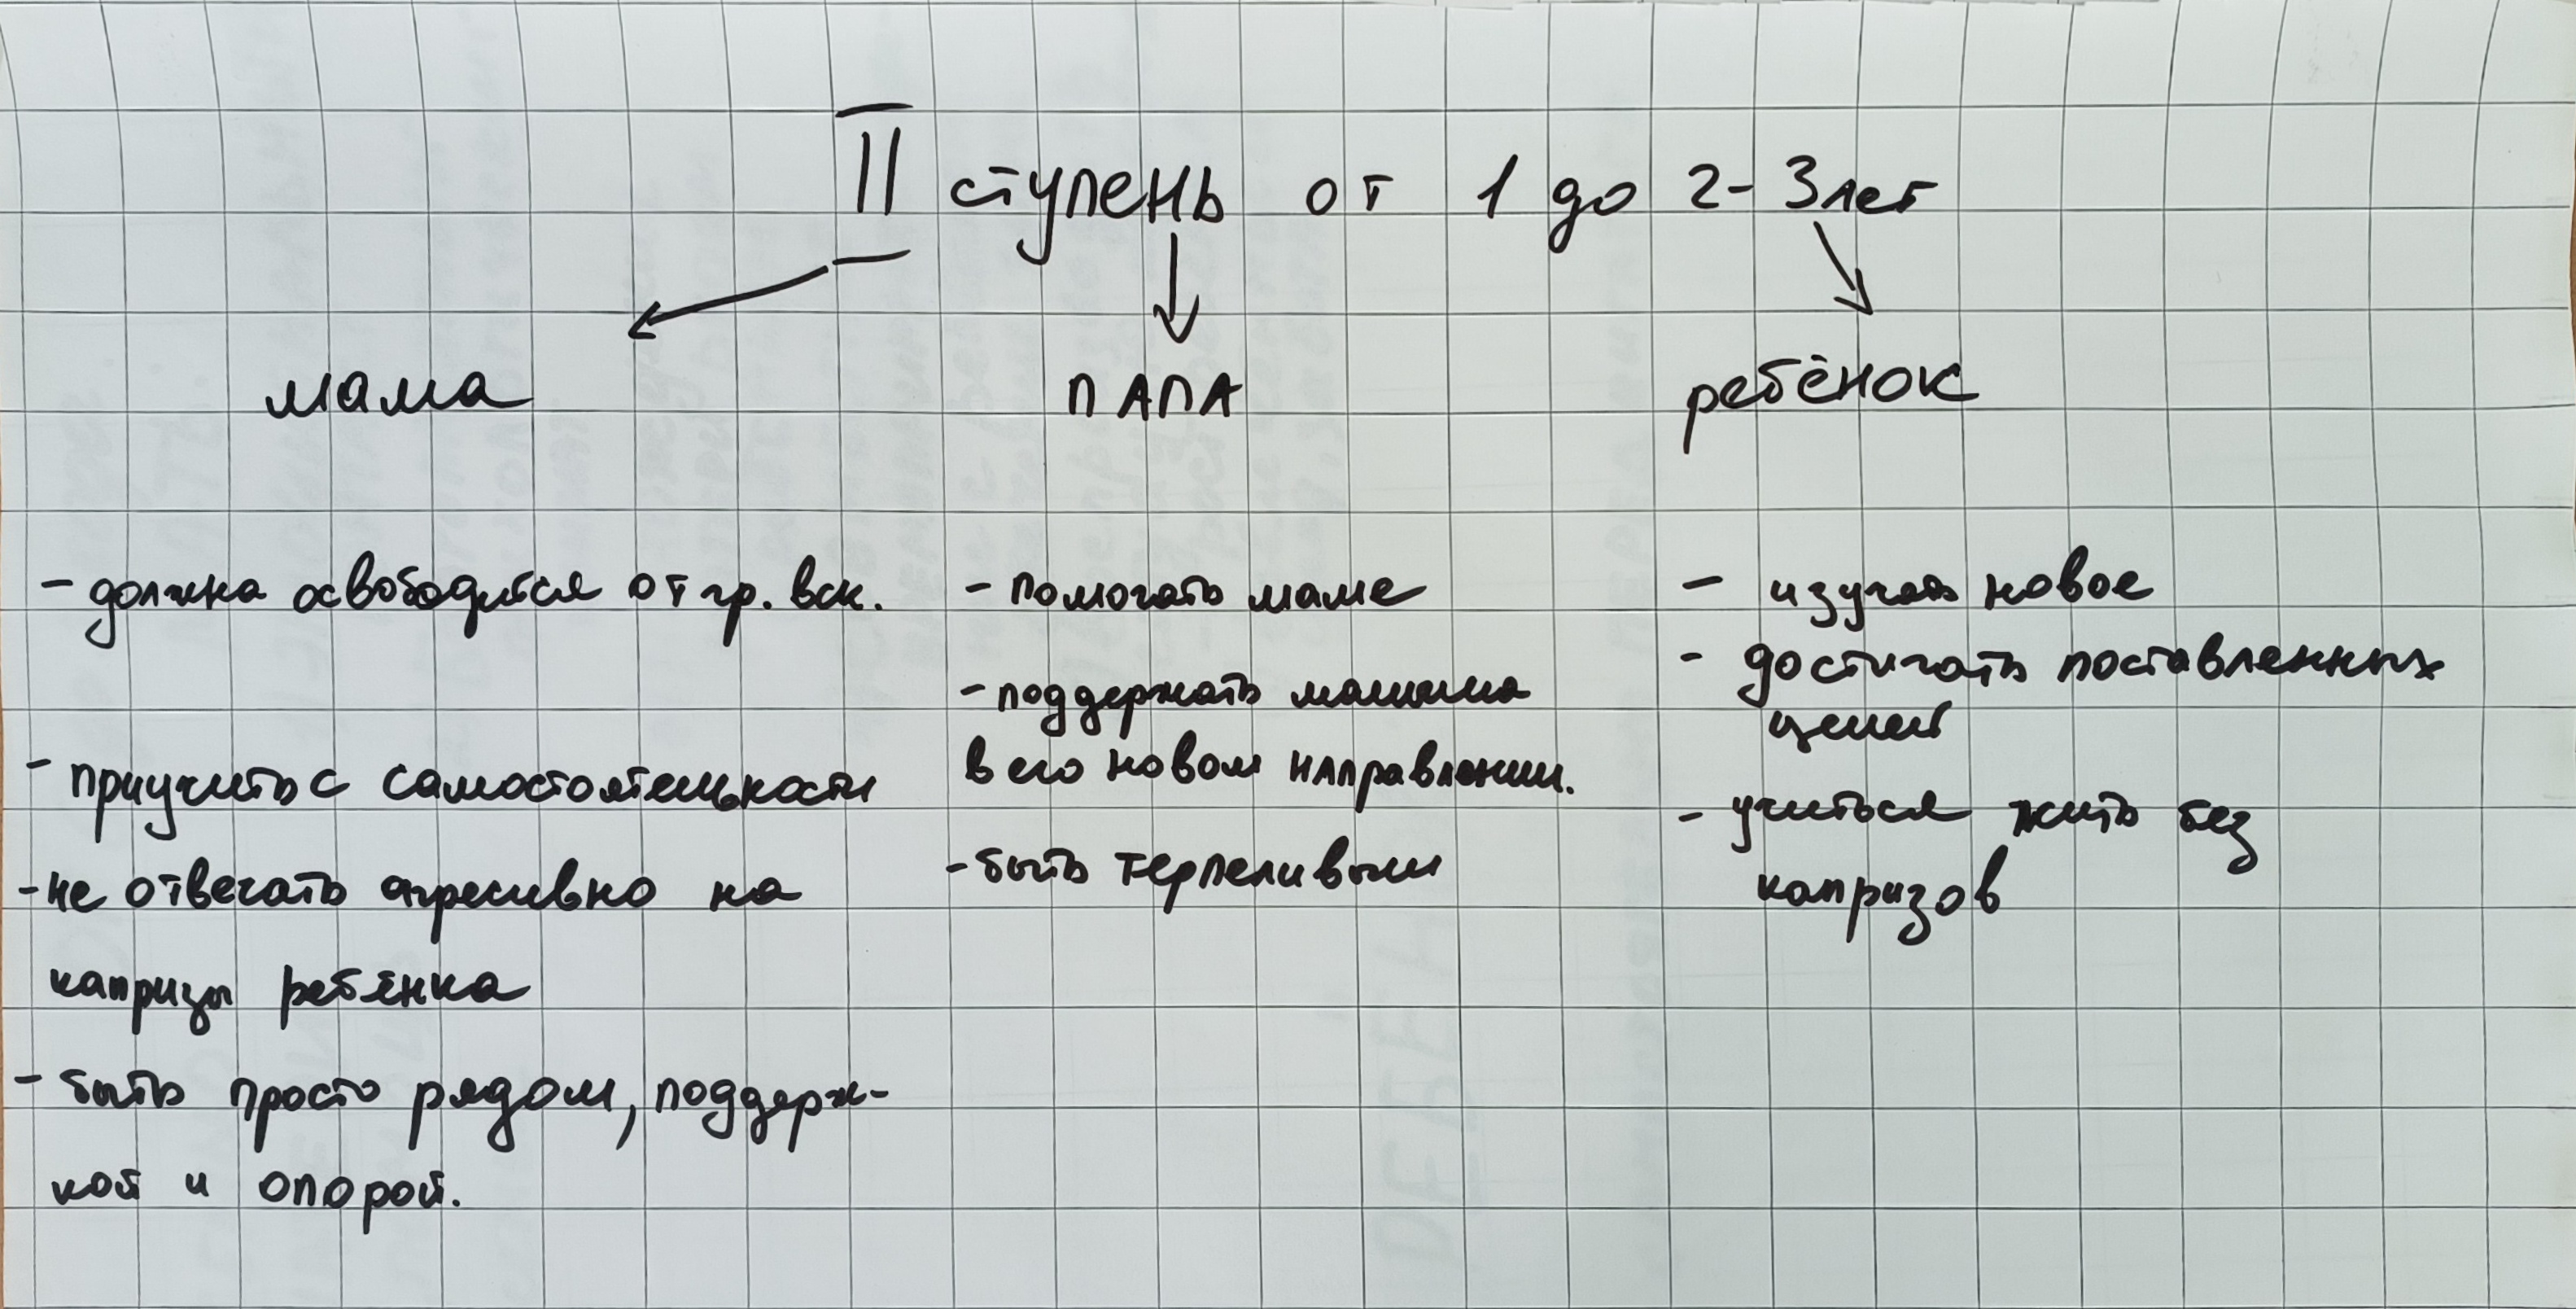 II ступень от 1 до 2-3 лет
мама
ПАПА
ребёнок
- должна освободится от гр. вск.
- приучить с самостоятельности
- не отвечать агресивно на
капризы ребёнка
- быть просто рядом, поддерж-
кой и опорой.
- помогать маме
- поддержать малыша
в его новом направлении.
- быть терпеливым
- изучать новое
- достигать поставленных
целей
- учиться жить без
капризов